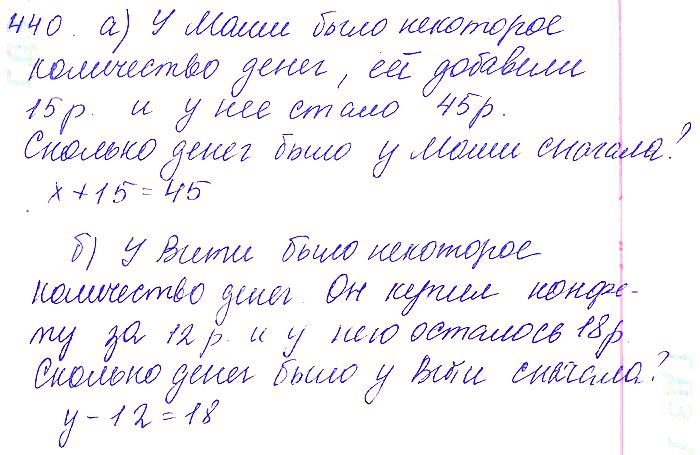 440. а) У Маши было некоторое
количество денег, ей добавили
15р. и у нее стало 45р.
Сколько денег было у Маши сначала?
х + 15 = 45
б) У Вити было некоторое
количество денег. Он купил конфе-
ту за 12 р. и у него осталось 18р.
Сколько денег было у Вити сначала?
у - 12 = 18